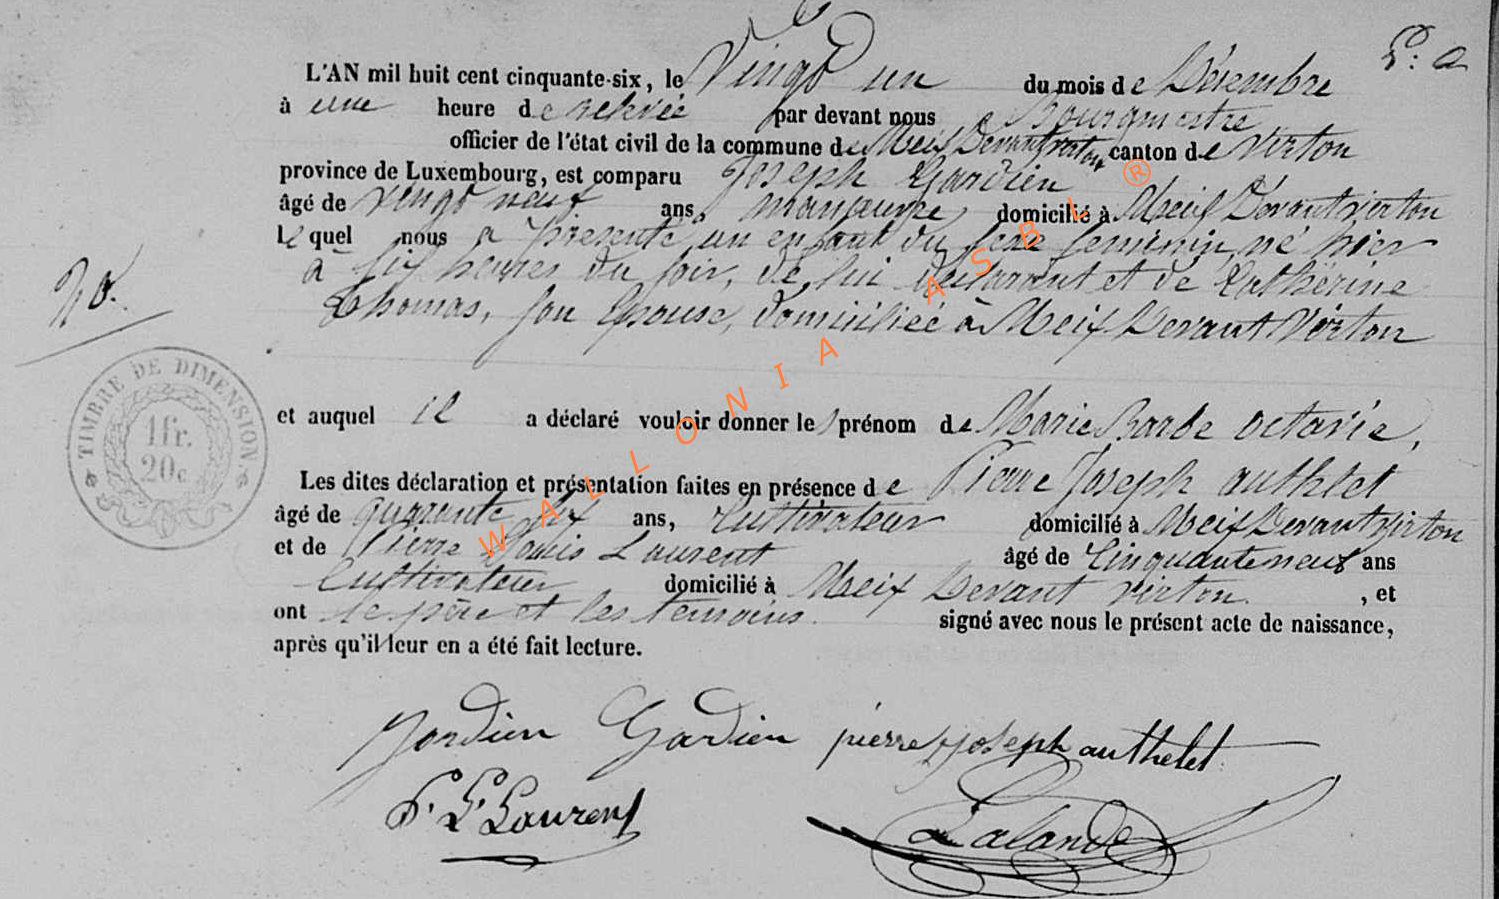 L'AN mil huit cent cinquante-six, le Vingt un du mois de Décembre
à une heure de relevée par devant nous Bourgmestre
officier de l'état civil de la commune de Meix Devant virton canton de Virton
province de Luxembourg, est comparu Joseph Gardien
âgé de vingt neuf ans, manœuvre, domicilié à Meix Devant virton
le quel nous a présenté un enfant du sexe feminin, né hier
à six heures du soir, de lui declarant et de Catherine
Thomas, son Epouse, domiciliée à Meix Devant Virton
20.
et auquel il a déclaré vouloir donner les prénom de Marie Barbe octavie,
TIMBRE DE DIMENSION
1 fr.
20 c
Les dites déclaration et présentation faites en présence de Pierre Joseph authlet
âgé de quarante ans, Cultivateur domicilié à Meix Devant virton
et de Pierre Louis Laurent âgé de Cinquante neuf ans
Cultivateur domicilié à Meix Devant Virton , et
ont le père et les temoins signé avec nous le présent acte de naissance,
après qu'il leur en a été fait lecture.
Gardien pierre joseph authelet
P. L. Laurent Lalande
WALLONIA ASBL ®